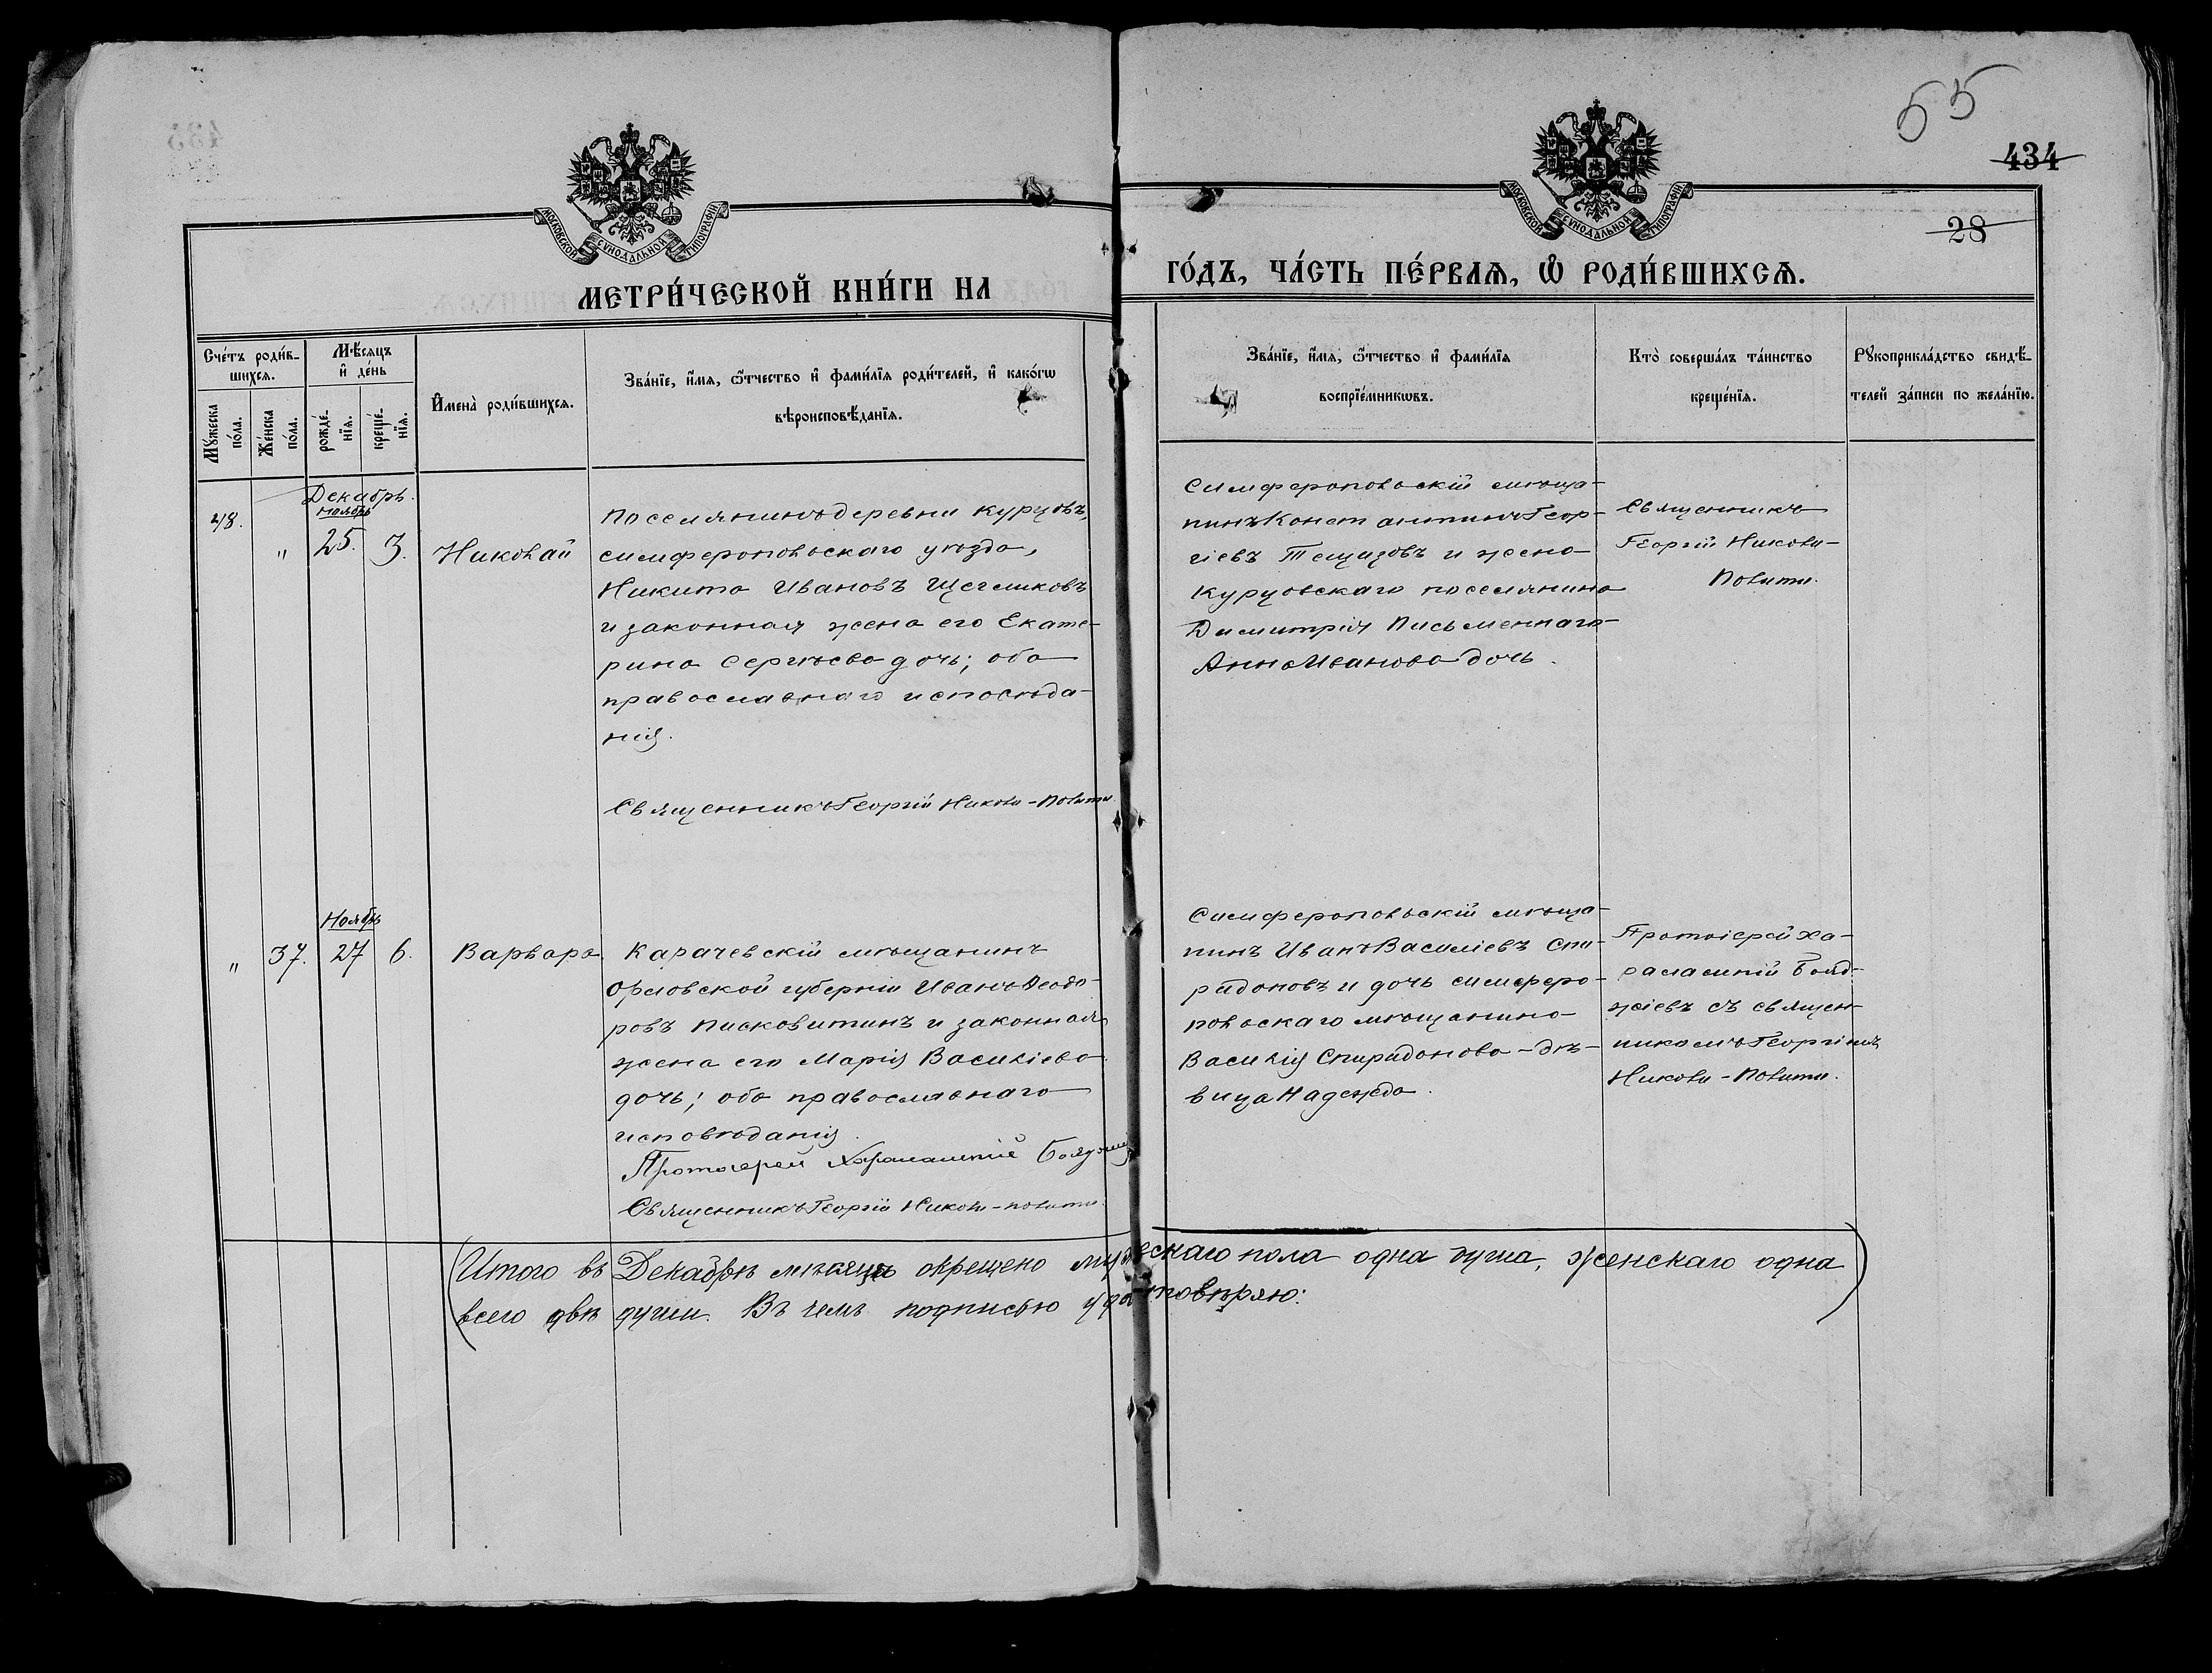 55
434
28
МОСКОВСКОЙ СѴНОДАЛЬНОЙ ТИПОГРАФІИ
МОСКОВСКОЙ СѴНОДАЛЬНОЙ ТИПОГРАФІИ
МЕТРИ́ЧЕСКОЙ КНИ́ГИ НА
ГО́ДЪ, ЧА́СТЬ ПЕ́РВАѦ, Ѽ РОДИ́ВШИХСѦ.
Сче́тъ роди́в-
шихсѧ.
Мѣ́сѧцъ
и҆ де́нь
Мꙋ́жеска
по́ла.
Же́нска
по́ла.
рожде́-
нїѧ.
креще́-
нїѧ.
И҆мена̀ роди́вшихсѧ.
Зва́нїе, и҆́мѧ, ѻ҆́тчество и҆ фами́лїѧ роди́телей, и҆ како́гѡ
вѣроисповѣ́данїѧ.
Зва́нїе, и҆́мѧ, ѻ҆́тчество и҆ фами́лїѧ
воспрїе́мникѡвъ.
Кто̀ соверша́лъ та́инство
креще́нїѧ.
Рꙋкоприкла́дство свидѣ́-
телей за́писи по жела́нїю.
Декабрь.
48.
ноябрь
"
25.
3.
Николай
Поселянинъ деревни Курцовъ,
симферопольскаго уѣзда,
Никита Ивановъ Щегликовъ
и законная жена его Екате-
рина Сергѣева дочь; оба
православнаго исповѣда-
нія.
Священникъ Георгій Никола-Повити
Симферопольскій мѣща-
нинъ Константинъ Геор-
гіевъ и жена
Курцовскаго поселянина
Димитрія Письменнаго
Анна Иванова дочь.
Священникъ
Георгій Никола-
Повити.
Ноябрь
"
37.
27
6.
Варвара
Карачевскій мѣщанинъ
Орловской губерніи Иванъ Ѳеодо-
ровъ Писковитинъ и законная
жена его Марія Василіева
дочь; оба православнаго
исповѣданія.
Протоіерей Харалампій
Священникъ Георгій Никола-Повити.
Симферопольскій мѣща-
нинъ Иванъ Василіевъ Спи-
ридоновъ и дочь симферо-
польскаго мѣщанина
Василія Спиридонова - дѣ-
вица Надежда.
Протоіерей Ха-
ралампій Бояд-
жіевъ съ священ-
никомъ Георгіемъ
Никола-Повити.
(Итого въ Декабрѣ мѣсяцѣ окрещено мужескаго пола одна душа, женскаго одна
всего двѣ души. Въ чемъ подписью удостовѣряю:)